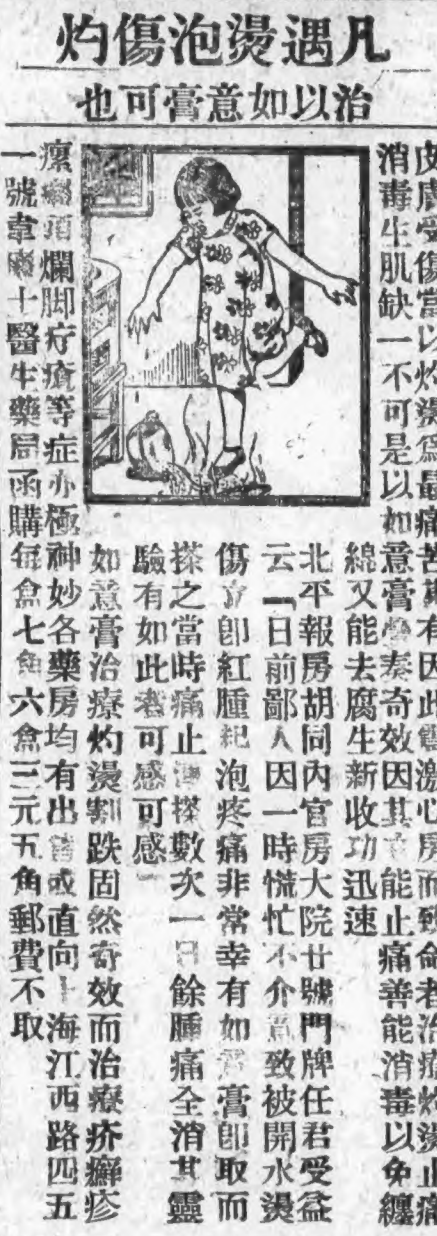 凡遇燙泡傷灼
治以如意膏可也
皮膚受傷當以灼燙爲最痛苦有因此震激心房而致命者治療灼燙止痛
消毒生肌缺一不可是以如意膏奏奇效因其能止痛善能消毒以免纏
綿又能去腐生新收功迅速
北平報房胡同內官房大院廿號門牌任君受益
云「日前鄙人因一時慌忙不介意致被開水燙
傷立卽紅腫起泡疼痛非常幸有如意膏卽取而
搽之當時痛止搽數次一日餘腫痛全消其靈
驗有如此者可感可感」
如意膏治療灼燙割跌固然奇效而治療疥癬疹
瘰癧頭爛脚疔瘡等症亦極神妙各藥房均有出售或直向上海江西路四五
一號韋廉士醫生藥局函購每盒七角六盒三元五角郵費不取